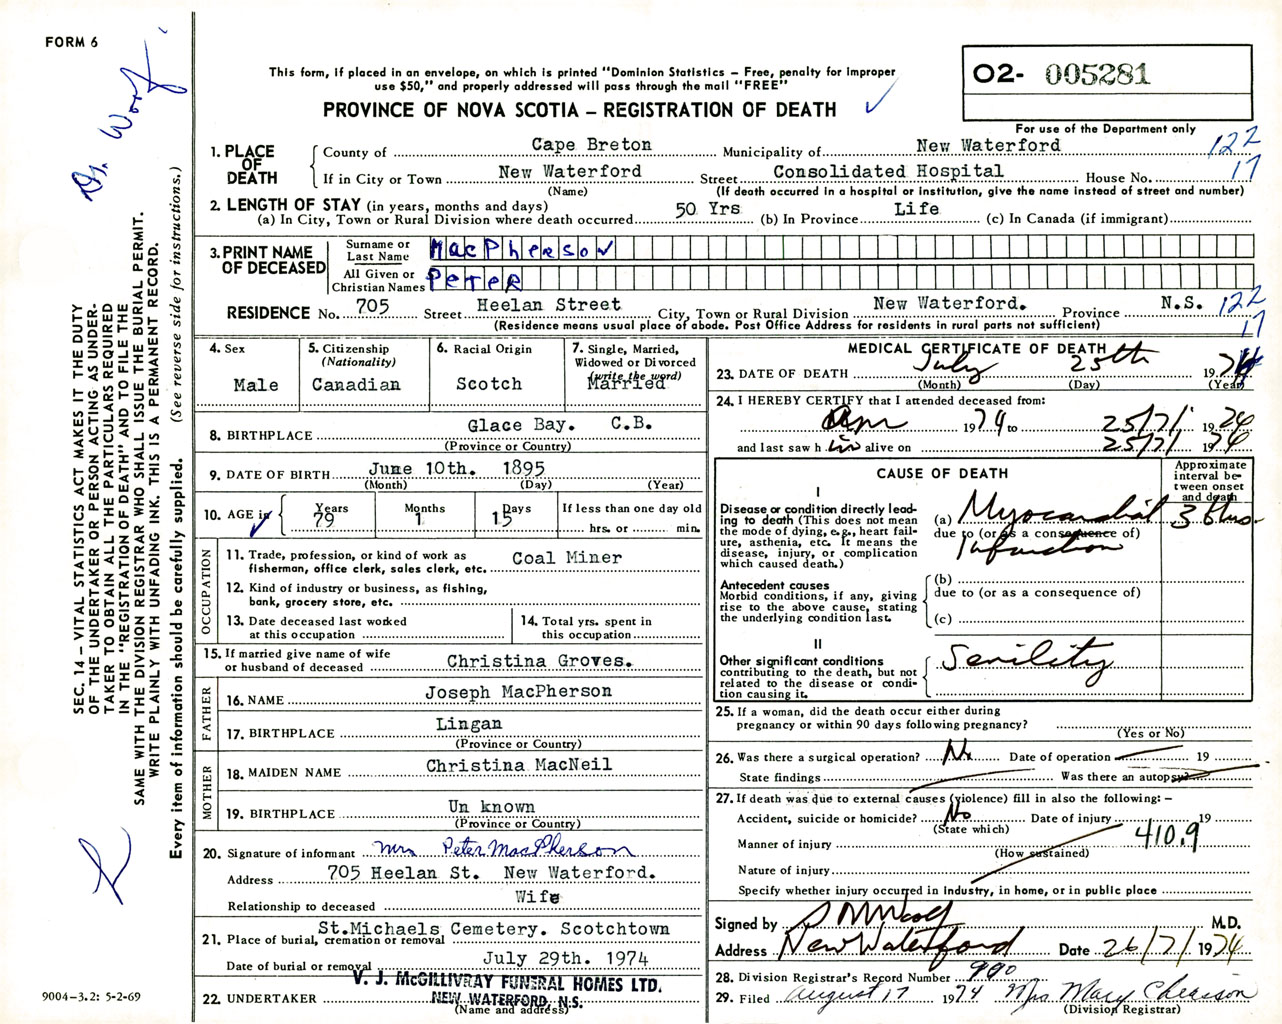 FORM 6
Dr. Woolf
This form, if placed in an envelope, on which is printed "Dominion Statistics – Free, penalty for improper
use $50," and properly addressed will pass through the mail "FREE"
PROVINCE OF NOVA SCOTIA – REGISTRATION OF DEATH
02- 005281
For use of the Department only
1. PLACE OF DEATH
County of Cape Breton Municipality of New Waterford 122
If in City or Town New Waterford Street Consolidated Hospital House No. 17
(Name) (If death occurred in a hospital or institution, give the name instead of street and number)
2. LENGTH OF STAY (in years, months and days)
(a) In City, Town or Rural Division where death occurred 50 Yrs (b) In Province Life (c) In Canada (if immigrant)
3. PRINT NAME OF DECEASED
Surname or Last Name MacPherson
All Given or Christian Names PETER
RESIDENCE No. 705 Street Heelan Street City, Town or Rural Division New Waterford. Province N.S. 122
(Residence means usual place of abode. Post Office Address for residents in rural parts not sufficient) 17
4. Sex
Male
5. Citizenship
(Nationality)
Canadian
6. Racial Origin
Scotch
7. Single, Married,
Widowed or Divorced
(write the word)
Married
8. BIRTHPLACE Glace Bay. C.B.
(Province or Country)
9. DATE OF BIRTH June 10th. 1895
(Month) (Day) (Year)
10. AGE in
Years
79
Months
1
Days
15
If less than one day old
hrs. or min.
OCCUPATION
11. Trade, profession, or kind of work as
fisherman, office clerk, sales clerk, etc. Coal Miner
12. Kind of industry or business, as fishing,
bank, grocery store, etc.
13. Date deceased last worked
at this occupation
14. Total yrs. spent in
this occupation
15. If married give name of wife
or husband of deceased Christina Groves.
FATHER
16. NAME Joseph MacPherson
17. BIRTHPLACE Lingan
(Province or Country)
MOTHER
18. MAIDEN NAME Christina MacNeil
19. BIRTHPLACE Un known
(Province or Country)
20. Signature of informant Mrs Peter MacPherson
Address 705 Heelan St. New Waterford.
Relationship to deceased Wife
21. Place of burial, cremation or removal St.Michaels Cemetery. Scotchtown
Date of burial or removal July 29th. 1974
22. UNDERTAKER V. J. McGILLIVRAY FUNERAL HOMES LTD.
NEW WATERFORD, N.S.
(Name and address)
MEDICAL CERTIFICATE OF DEATH
23. DATE OF DEATH July 25th 1974
(Month) (Day) (Year)
24. I HEREBY CERTIFY that I attended deceased from:
Apr 1974 to 25/7/, 1974
and last saw h im alive on 25/7/ 1974
CAUSE OF DEATH
Approximate
interval be-
tween onset
and death
I
Disease or condition directly lead-
ing to death (This does not mean
the mode of dying, e.g., heart fail-
ure, asthenia, etc. It means the
disease, injury, or complication
which caused death.)
(a) Myocardial
due to (or as a consequence of)
Infarction
Antecedent causes
Morbid conditions, if any, giving
rise to the above cause, stating
the underlying condition last.
(b)
due to (or as a consequence of)
(c)
II
Other significant conditions
contributing to the death, but not
related to the disease or condi-
tion causing it.
Senility
25. If a woman, did the death occur either during
pregnancy or within 90 days following pregnancy?
(Yes or No)
26. Was there a surgical operation? No Date of operation 19
State findings Was there an autopsy?
27. If death was due to external causes (violence) fill in also the following: –
Accident, suicide or homicide? No Date of injury 19
(State which)
Manner of injury 410.9
(How sustained)
Nature of injury
Specify whether injury occurred in industry, in home, or in public place
Signed by M.D.
Address New Waterford Date 26/7/1974
28. Division Registrar's Record Number 990
29. Filed August 17 1974 Mrs Mary
(Division Registrar)
SEC. 14 – VITAL STATISTICS ACT MAKES IT THE DUTY
OF THE UNDERTAKER OR PERSON ACTING AS UNDER-
TAKER TO OBTAIN ALL THE PARTICULARS REQUIRED
IN THE "REGISTRATION OF DEATH" AND TO FILE THE
SAME WITH THE DIVISION REGISTRAR WHO SHALL ISSUE THE BURIAL PERMIT.
WRITE PLAINLY WITH UNFADING INK. THIS IS A PERMANENT RECORD.
Every item of information should be carefully supplied. (See reverse side for instructions.)
9004–3.2: 5-2-69